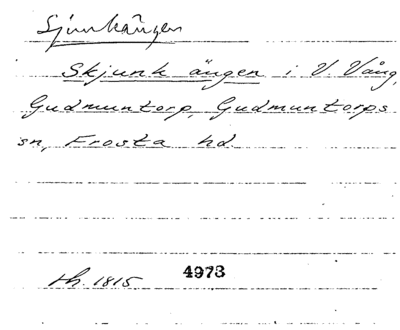 Sjunkängen
Skjunk ängen i V. Vång,
Gudmuntorp, Gudmuntorps
sn, Frosta hd.
lh. 1815 4973